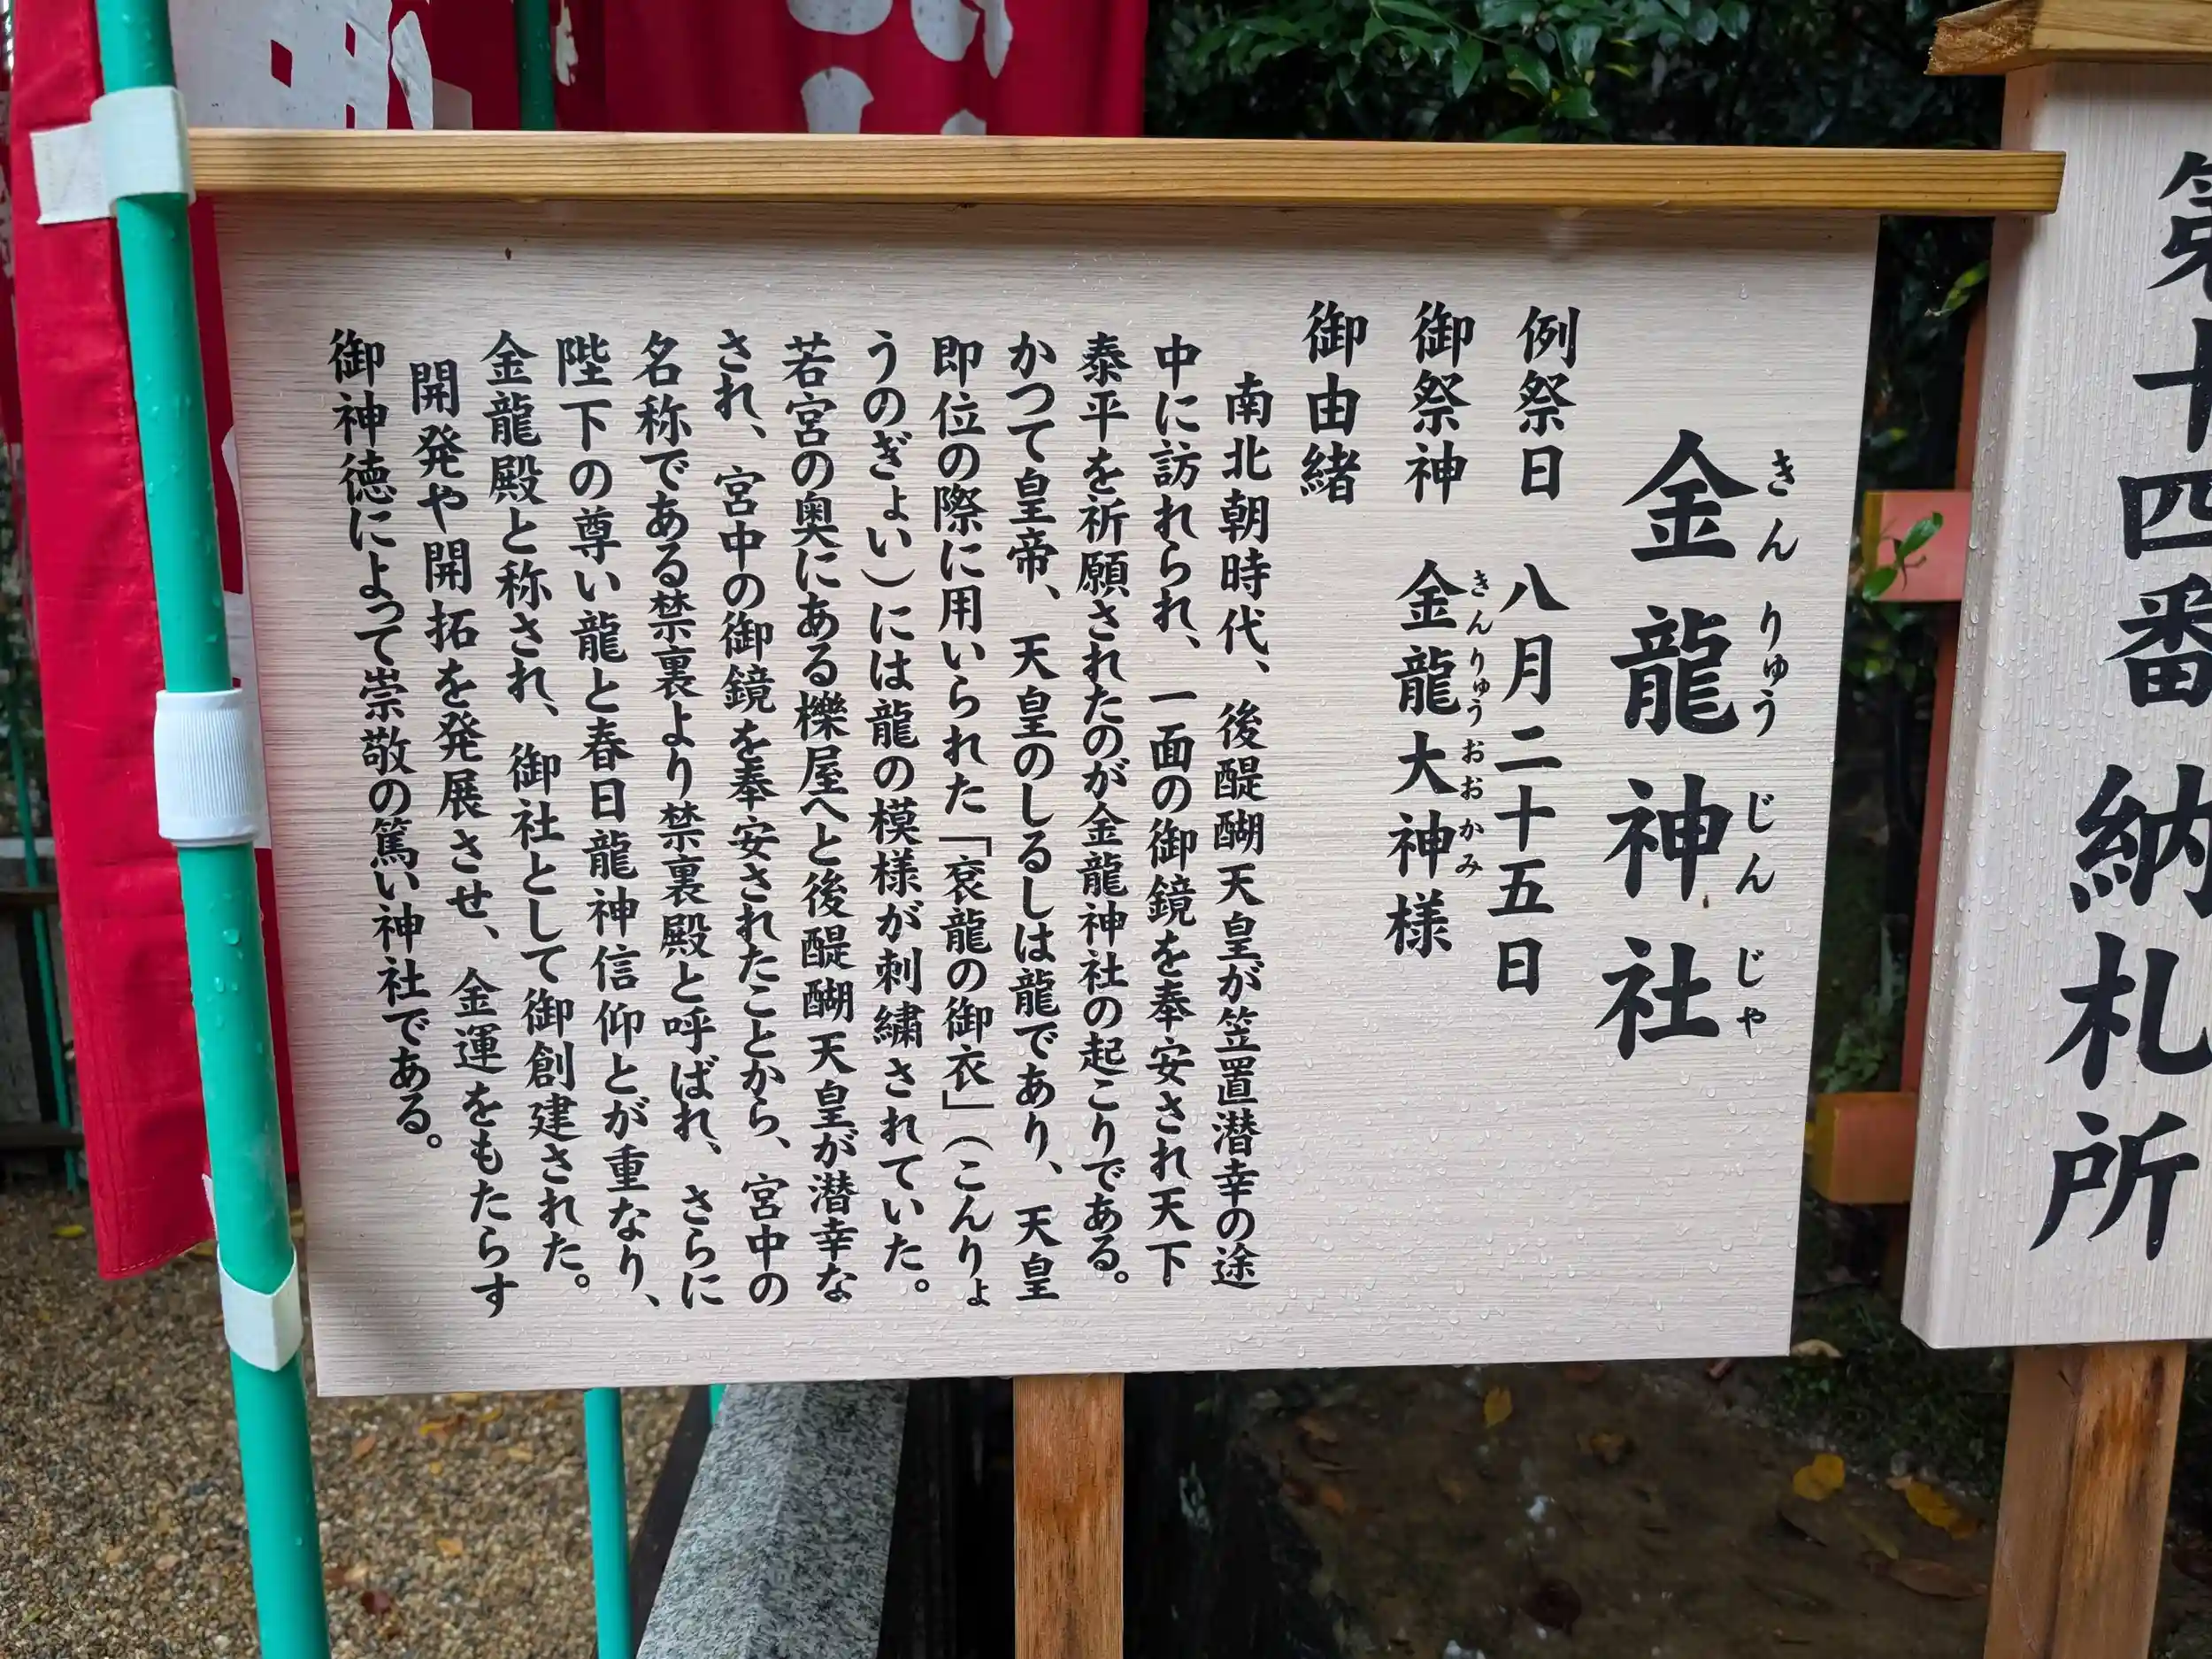 金龍神社
きんりゅうじんじゃ
例祭日 八月二十五日
御祭神 金龍大神様
きんりゅうおおかみ
御由緒
南北朝時代、後醍醐天皇が笠置潜幸の途
中に訪れられ、一面の御鏡を奉安され天下
泰平を祈願されたのが金龍神社の起こりである。
かつて皇帝、天皇のしるしは龍であり、天皇
即位の際に用いられた「袞龍の御衣」(こんりょ
うのぎょい)には龍の模様が刺繍されていた。
若宮の奥にある櫟屋へと後醍醐天皇が潜幸な
され、宮中の御鏡を奉安されたことから、宮中の
名称である禁裏より禁裏殿と呼ばれ、さらに
陛下の尊い龍と春日龍神信仰とが重なり、
金龍殿と称され、御社として御創建された。
開発や開拓を発展させ、金運をもたらす
御神徳によって崇敬の篤い神社である。
第十四番 納札所